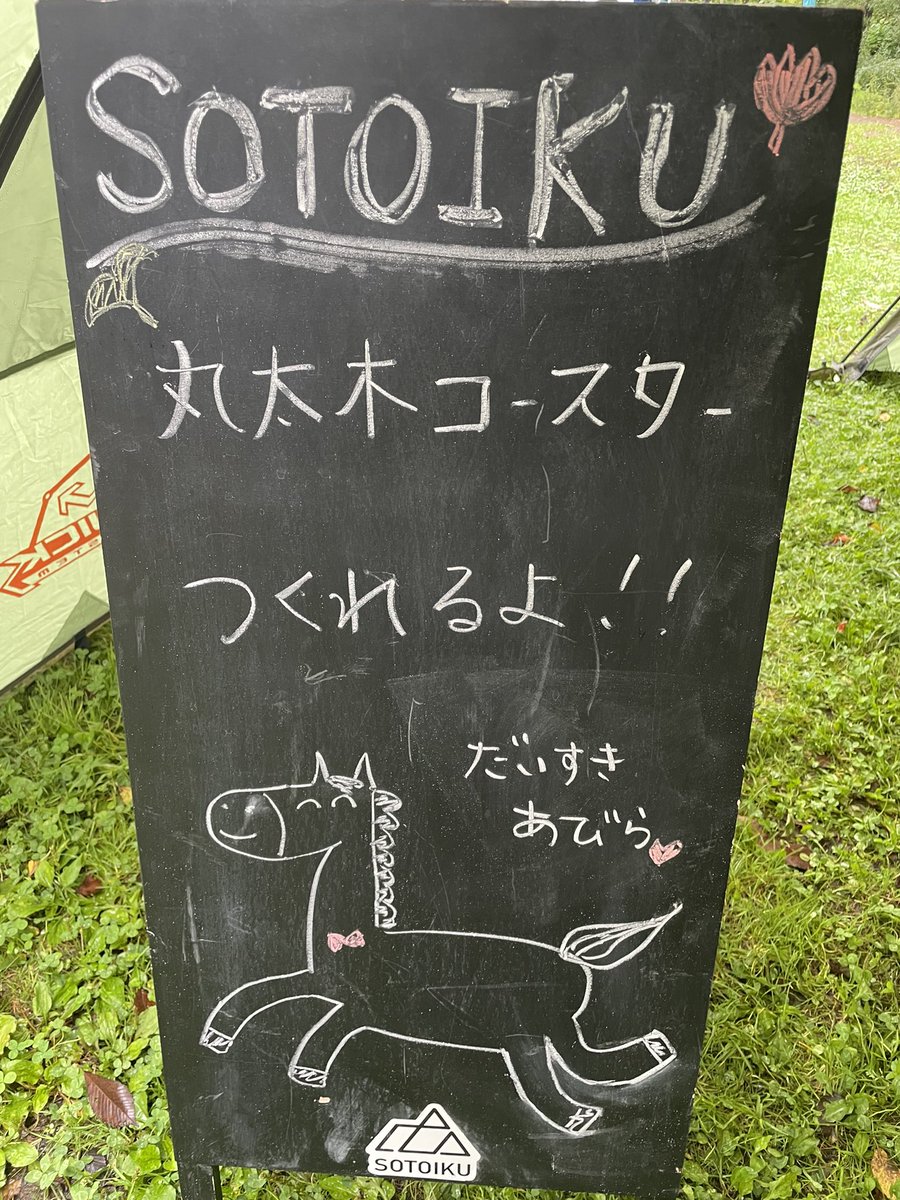 SOTOIKU
丸太木コースター
つくれるよ!!
だいすき
あびら
SOTOIKU